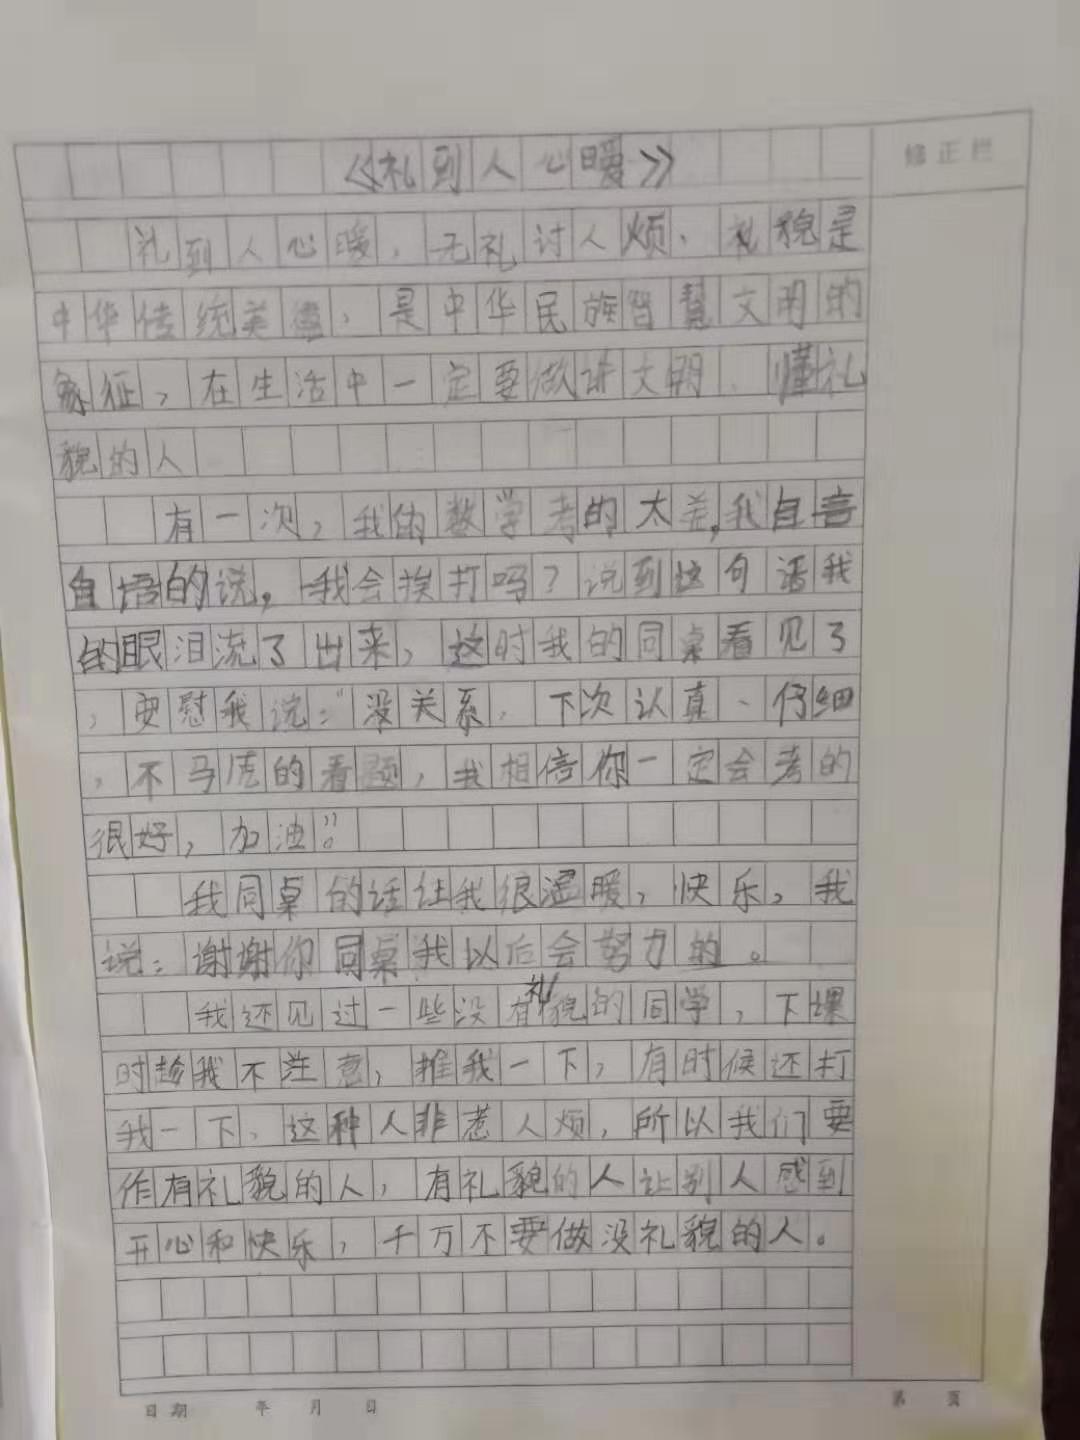 《礼到人心暖》
修正栏
礼到人心暖，无礼讨人烦、礼貌是
中华传统美德，是中华民族智慧文明的
象征，在生活中一定要做讲文明、懂礼
貌的人
有一次，我的数学考的太差，我自言
自语的说。我会挨打吗？说到这句话我
的眼泪流了出来，这时我的同桌看见了
，安慰我说：“没关系，下次认真、仔细
，不马虎的看题，我相信你一定会考的
很好，加油”。
我同桌的话让我很温暖，快乐，我
说：谢谢你同桌我以后会努力的。
我还见过一些没有礼貌的同学，下课
时趁我不注意，推我一下，有时候还打
我一下、这种人非惹人烦，所以我们要
作有礼貌的人，有礼貌的人让别人感到
开心和快乐，千万不要做没礼貌的人。
日期 年 月 日 第 页